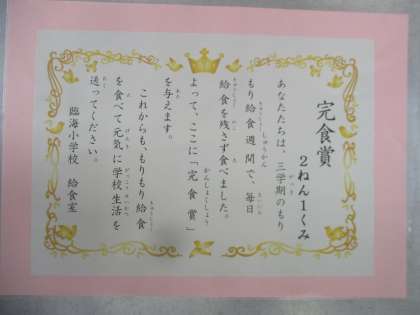 完食賞
2ねん1くみ
あなたたちは、三学期のもり
もり給食週間で、毎日
給食を残さず食べました。
よって、ここに「完食賞」
を与えます。
これからも、もりもり給食
を食べて元気に学校生活を
送ってください。
臨海小学校 給食室